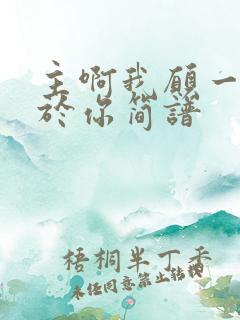 主啊我愿一
於你简谱
梧桐半丁香
未经同意禁止转载